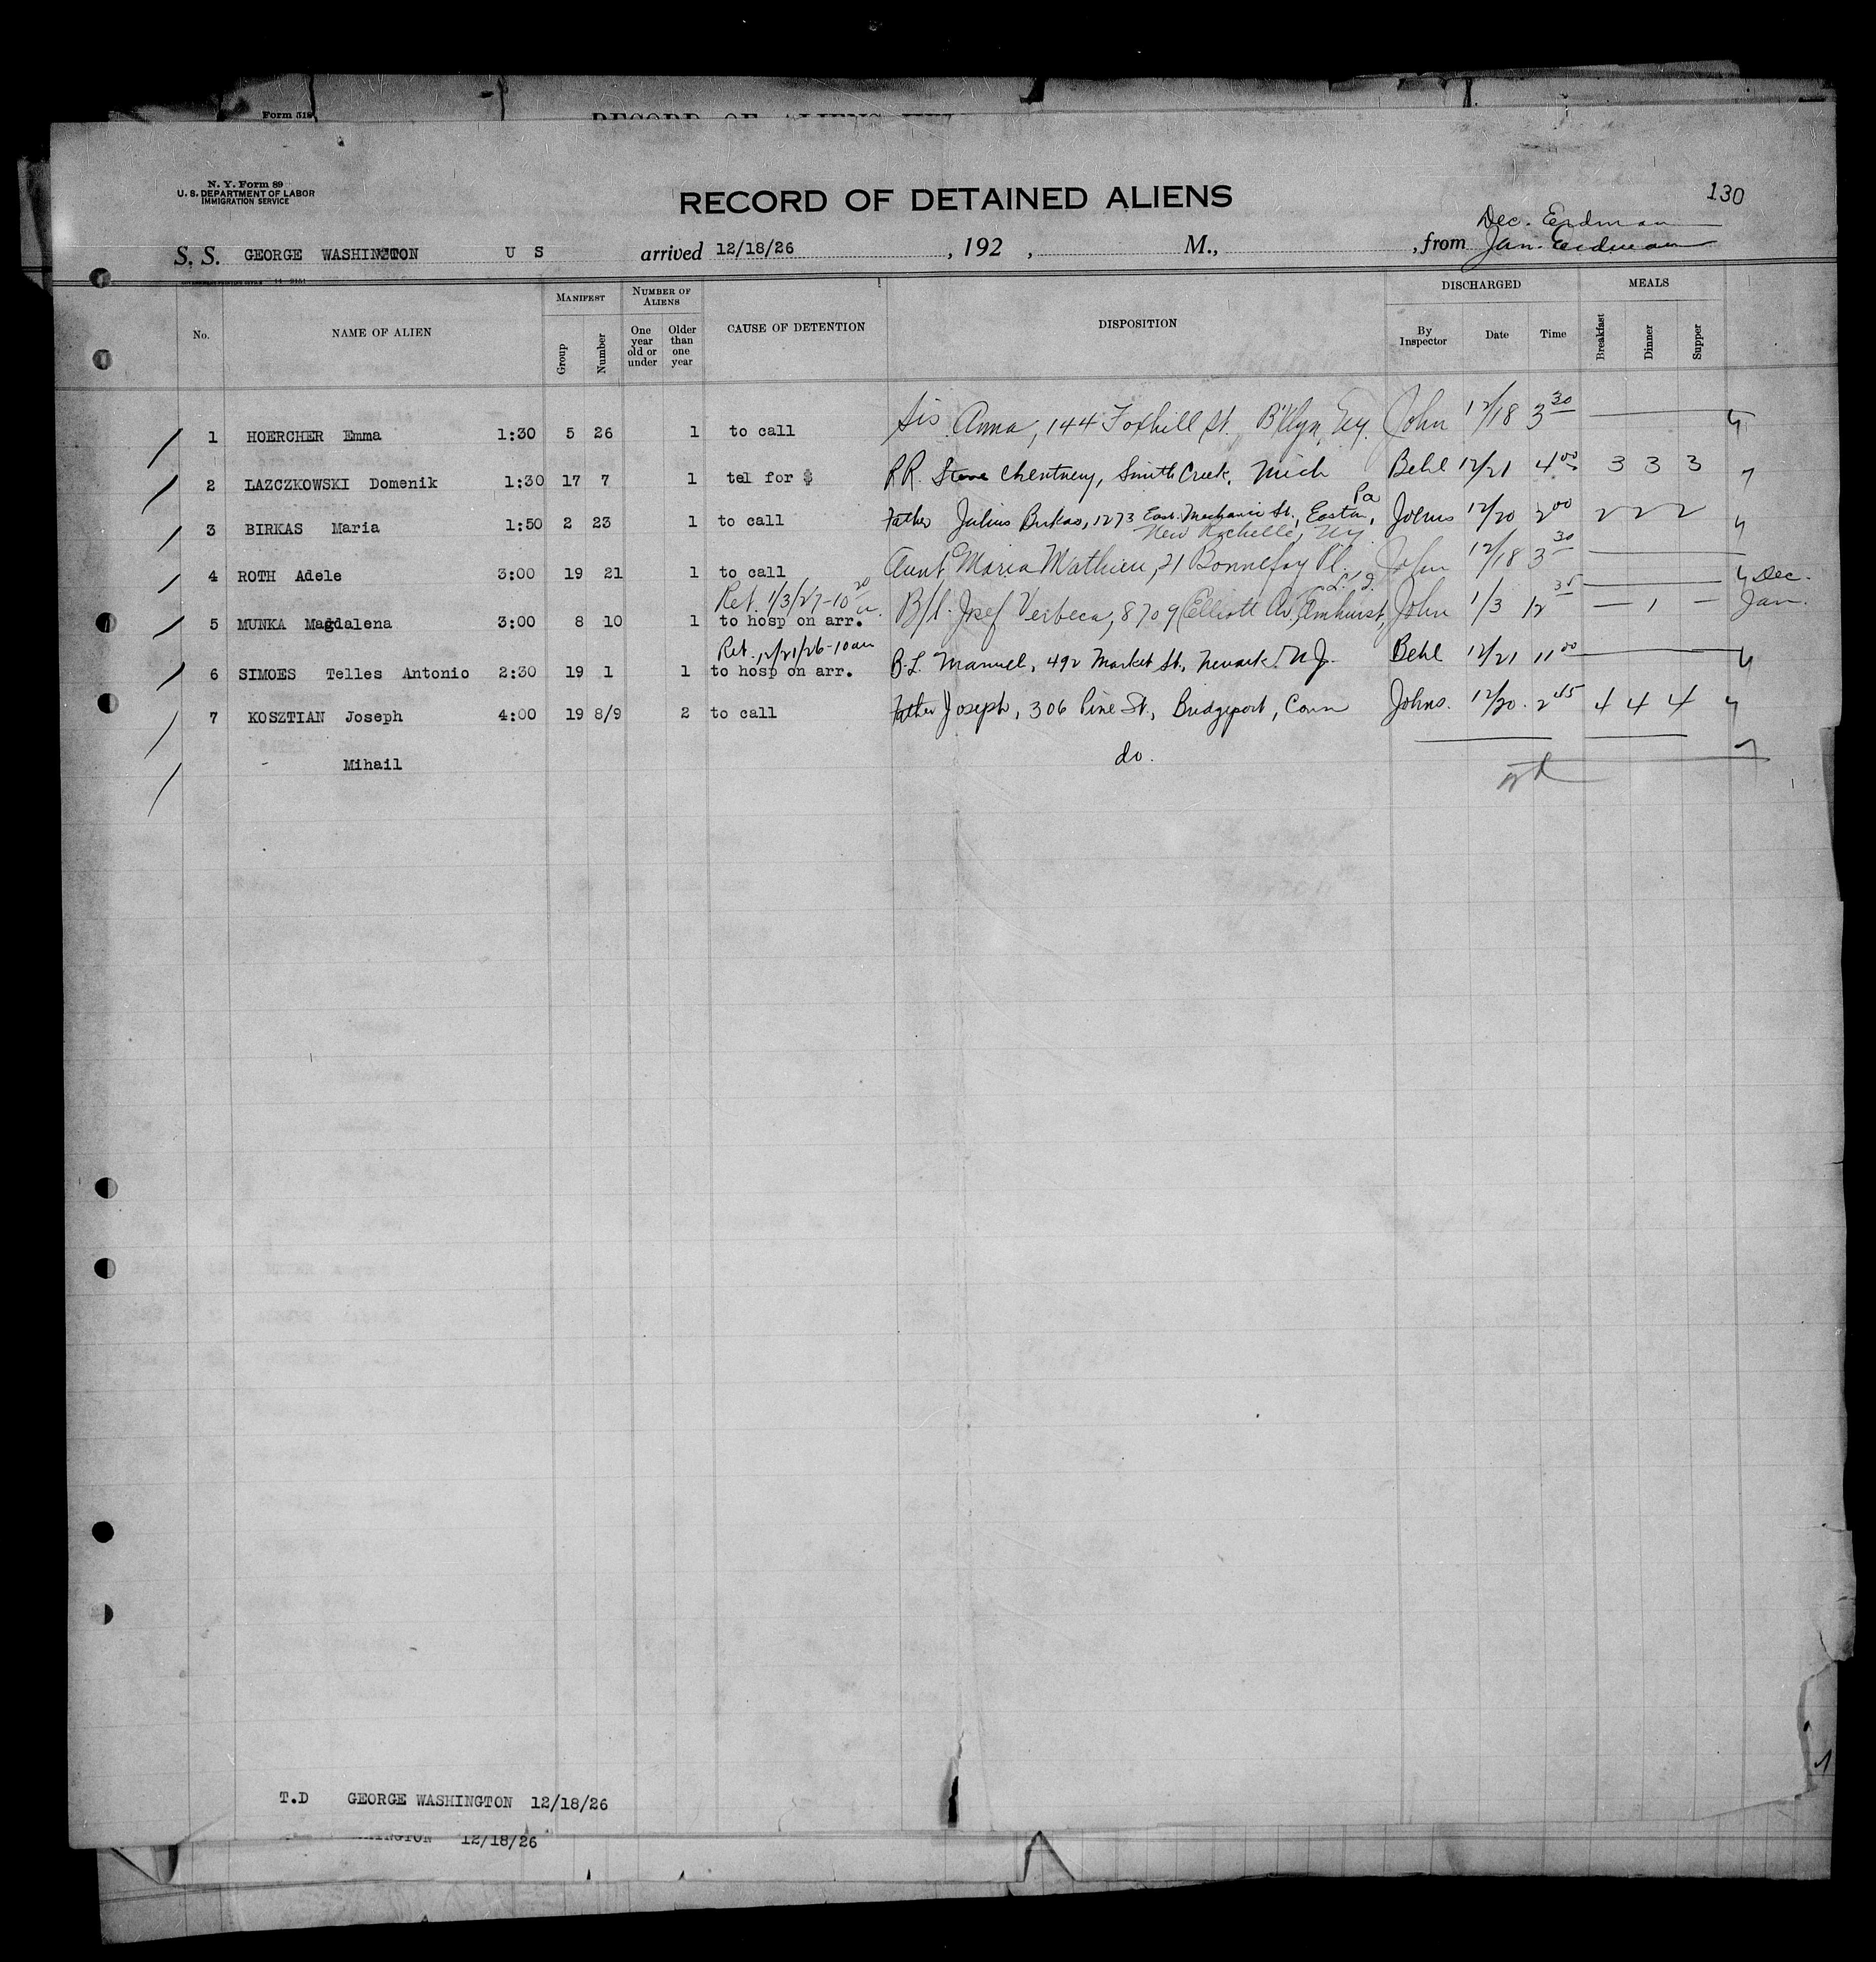 Form 318
RECORD OF ALIENS HEL
N. Y. Form 89
U. S. DEPARTMENT OF LABOR
IMMIGRATION SERVICE
RECORD OF DETAINED ALIENS
130
Dec. Erdman
S. S. GEORGE WASHINGTON U S arrived 12/18/26 , 192 , M., , from Jan. Erdman
No. NAME OF ALIEN MANIFEST Group Number NUMBER OF ALIENS One year old or under Older than one year CAUSE OF DETENTION DISPOSITION DISCHARGED By Inspector Date Time MEALS Breakfast Dinner Supper
1 HOERCHER Emma 1:30 5 26 1 to call Sis Anna, 144 Foxhill St. B'klyn, Ny. John 12/18 3 30
2 LAZCZKOWSKI Domenik 1:30 17 7 1 tel for $ RR. Steve Chentneny, Smith Creek, Mich Behl 12/21 4 00 3 3 3
3 BIRKAS Maria 1:50 2 23 1 to call Father Julius Birkas, 1273 East. Mechanic St., Easton, Pa Johns 12/20 2 00 2 2 2
New Rochelle, Ny.
4 ROTH Adele 3:00 19 21 1 to call Aunt Maria Mathieu, 21 Bonnefoy Pl. John 12/18 3 30
Ret. 1/3/27-10 20 a. L. I. Dec.
5 MUNKA Magdalena 3:00 8 10 1 to hosp on arr. B/l. Josef Verbeca, 8709 Elliott Av. Amhurst, John 1/3 12 35 — 1 — Jan.
Ret. 12/21/26-10am
6 SIMOES Telles Antonio 2:30 19 1 1 to hosp on arr. B.L. Manuel, 492 Market St., Newark, N.J. Behl 12/21 11 00
7 KOSZTIAN Joseph 4:00 19 8/9 2 to call Father Joseph, 306 Pine St., Bridgeport, Conn Johns. 12/20. 2 45 4 4 4
- Mihail do.
T.D GEORGE WASHINGTON 12/18/26
HINGTON 12/18/26